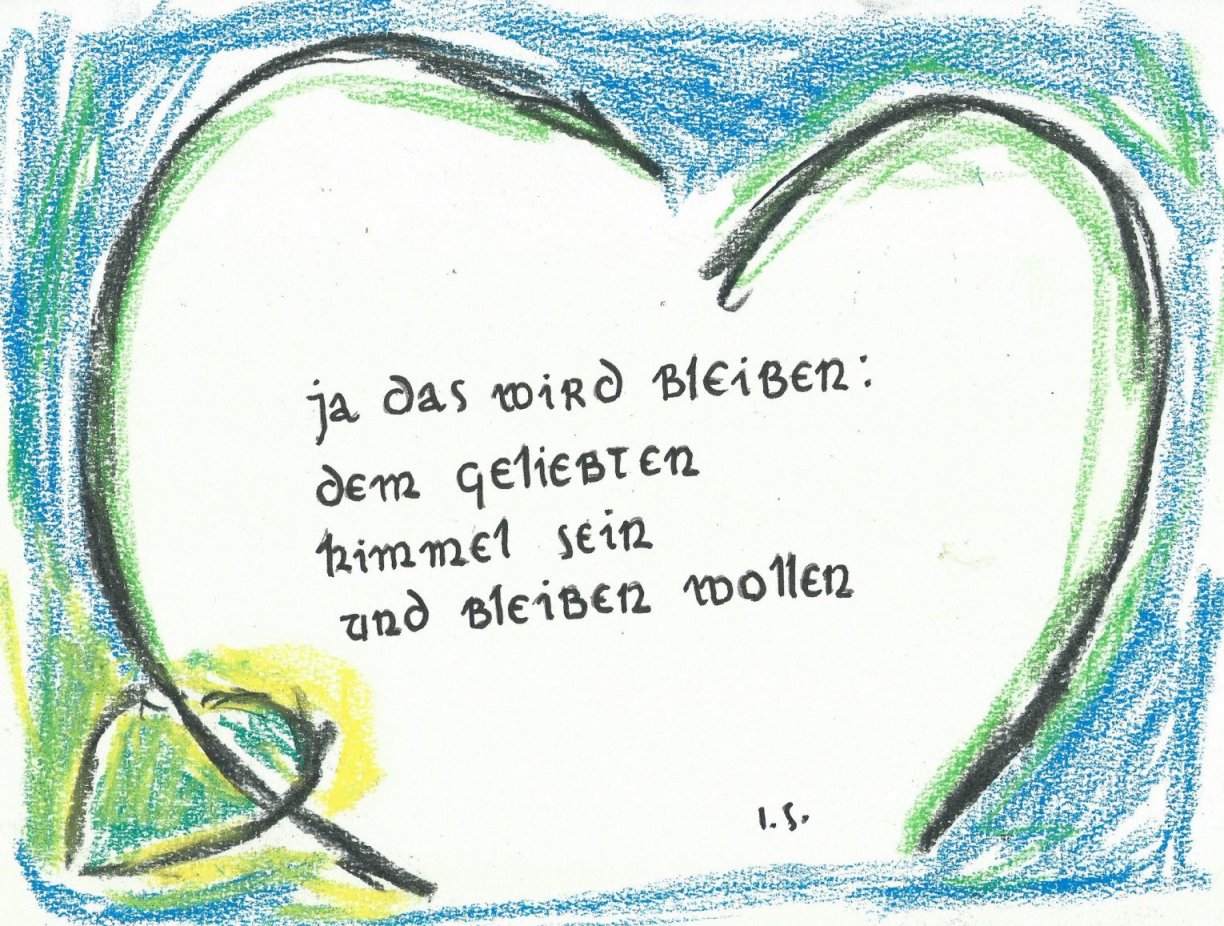 ja das wird bleiben:
dem geliebten
himmel sein
und bleiben wollen
I.S.